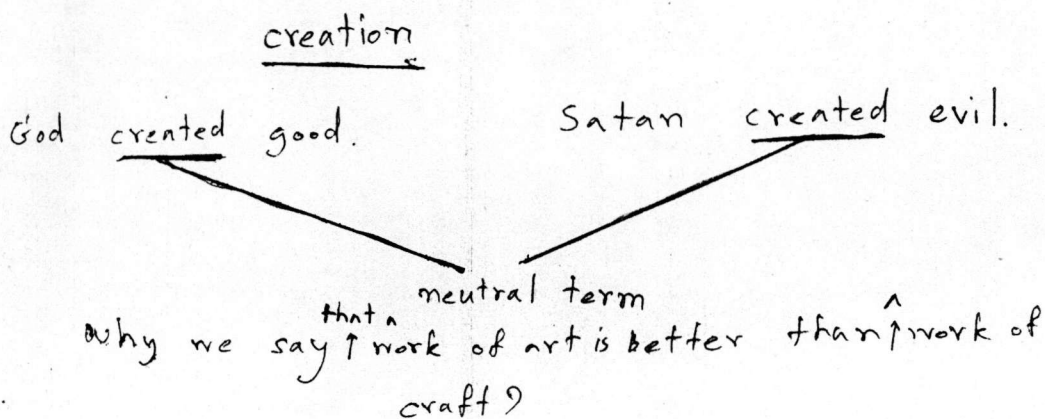 creation
God created good. Satan created evil.
neutral term
why we say that a work of art is better than a work of
craft?